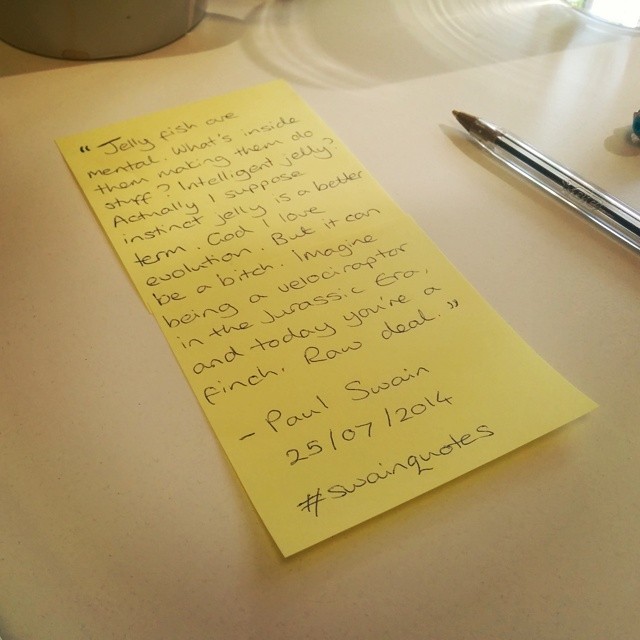 “ Jelly fish are
mental. What's inside
them making them do
stuff? Intelligent jelly?
Actually I suppose
instinct jelly is a better
term. God I love
evolution. But it can
be a bitch. Imagine
being a velociraptor
in the Jurassic Era,
and today you're a
finch. Raw deal. ”
- Paul Swain
25/07/2014
#swainquotes